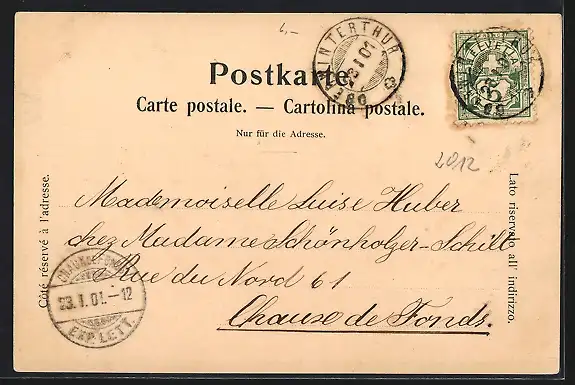 4,-
WINTERTHUR
23.I.01
HELVETIA
5
Postkarte.
Carte postale. — Cartolina postale.
Nur für die Adresse.
2012
Côté réservé à l'adresse.
Lato riservato all' indirizzo.
Mademoiselle Luise Huber
chez Madame Schönholzer-Schilt
Rue du Nord 61
Chause de Fonds.
23.I.01.–12
EXP. LETT.